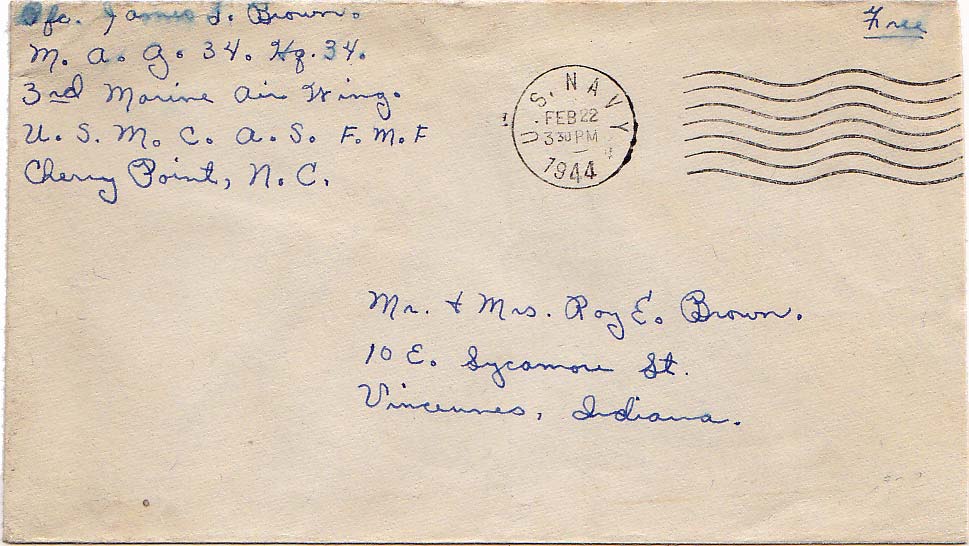 Pfc. James S. Brown.
Free
M. A. G. 34. Hq. 34.
3rd Marine Air Wing.
U. S. M. C. A. S. F. M. F
Cherry Point, N. C.
U.S. NAVY
FEB 22
3 30 PM
1944
Mr. + Mrs. Roy E. Brown.
10 E. Sycamore St.
Vincennes, Indiana.